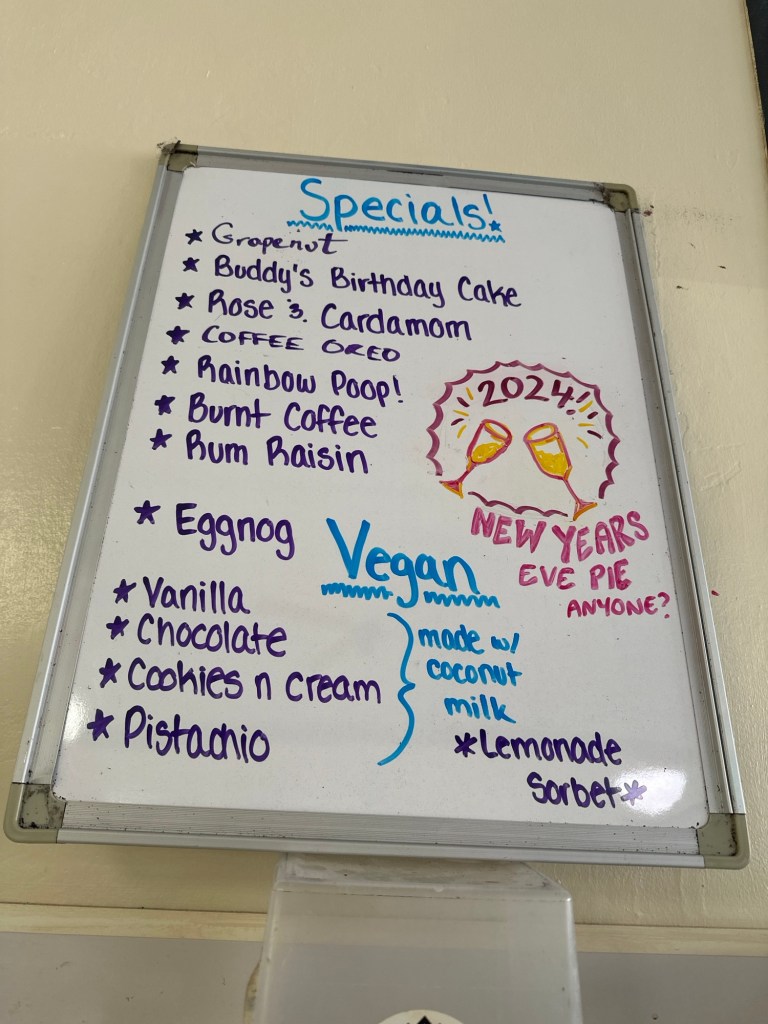 Specials!
* Grapenut
* Buddy's Birthday Cake
* Rose & Cardamom
* COFFEE OREO
* Rainbow Poop!
* Burnt Coffee
* Rum Raisin
* Eggnog
2024!
NEW YEARS
EVE PIE
ANYONE?
Vegan
* Vanilla
* Chocolate
* Cookies n cream
* Pistachio
made w/
coconut
milk
*Lemonade
Sorbet*